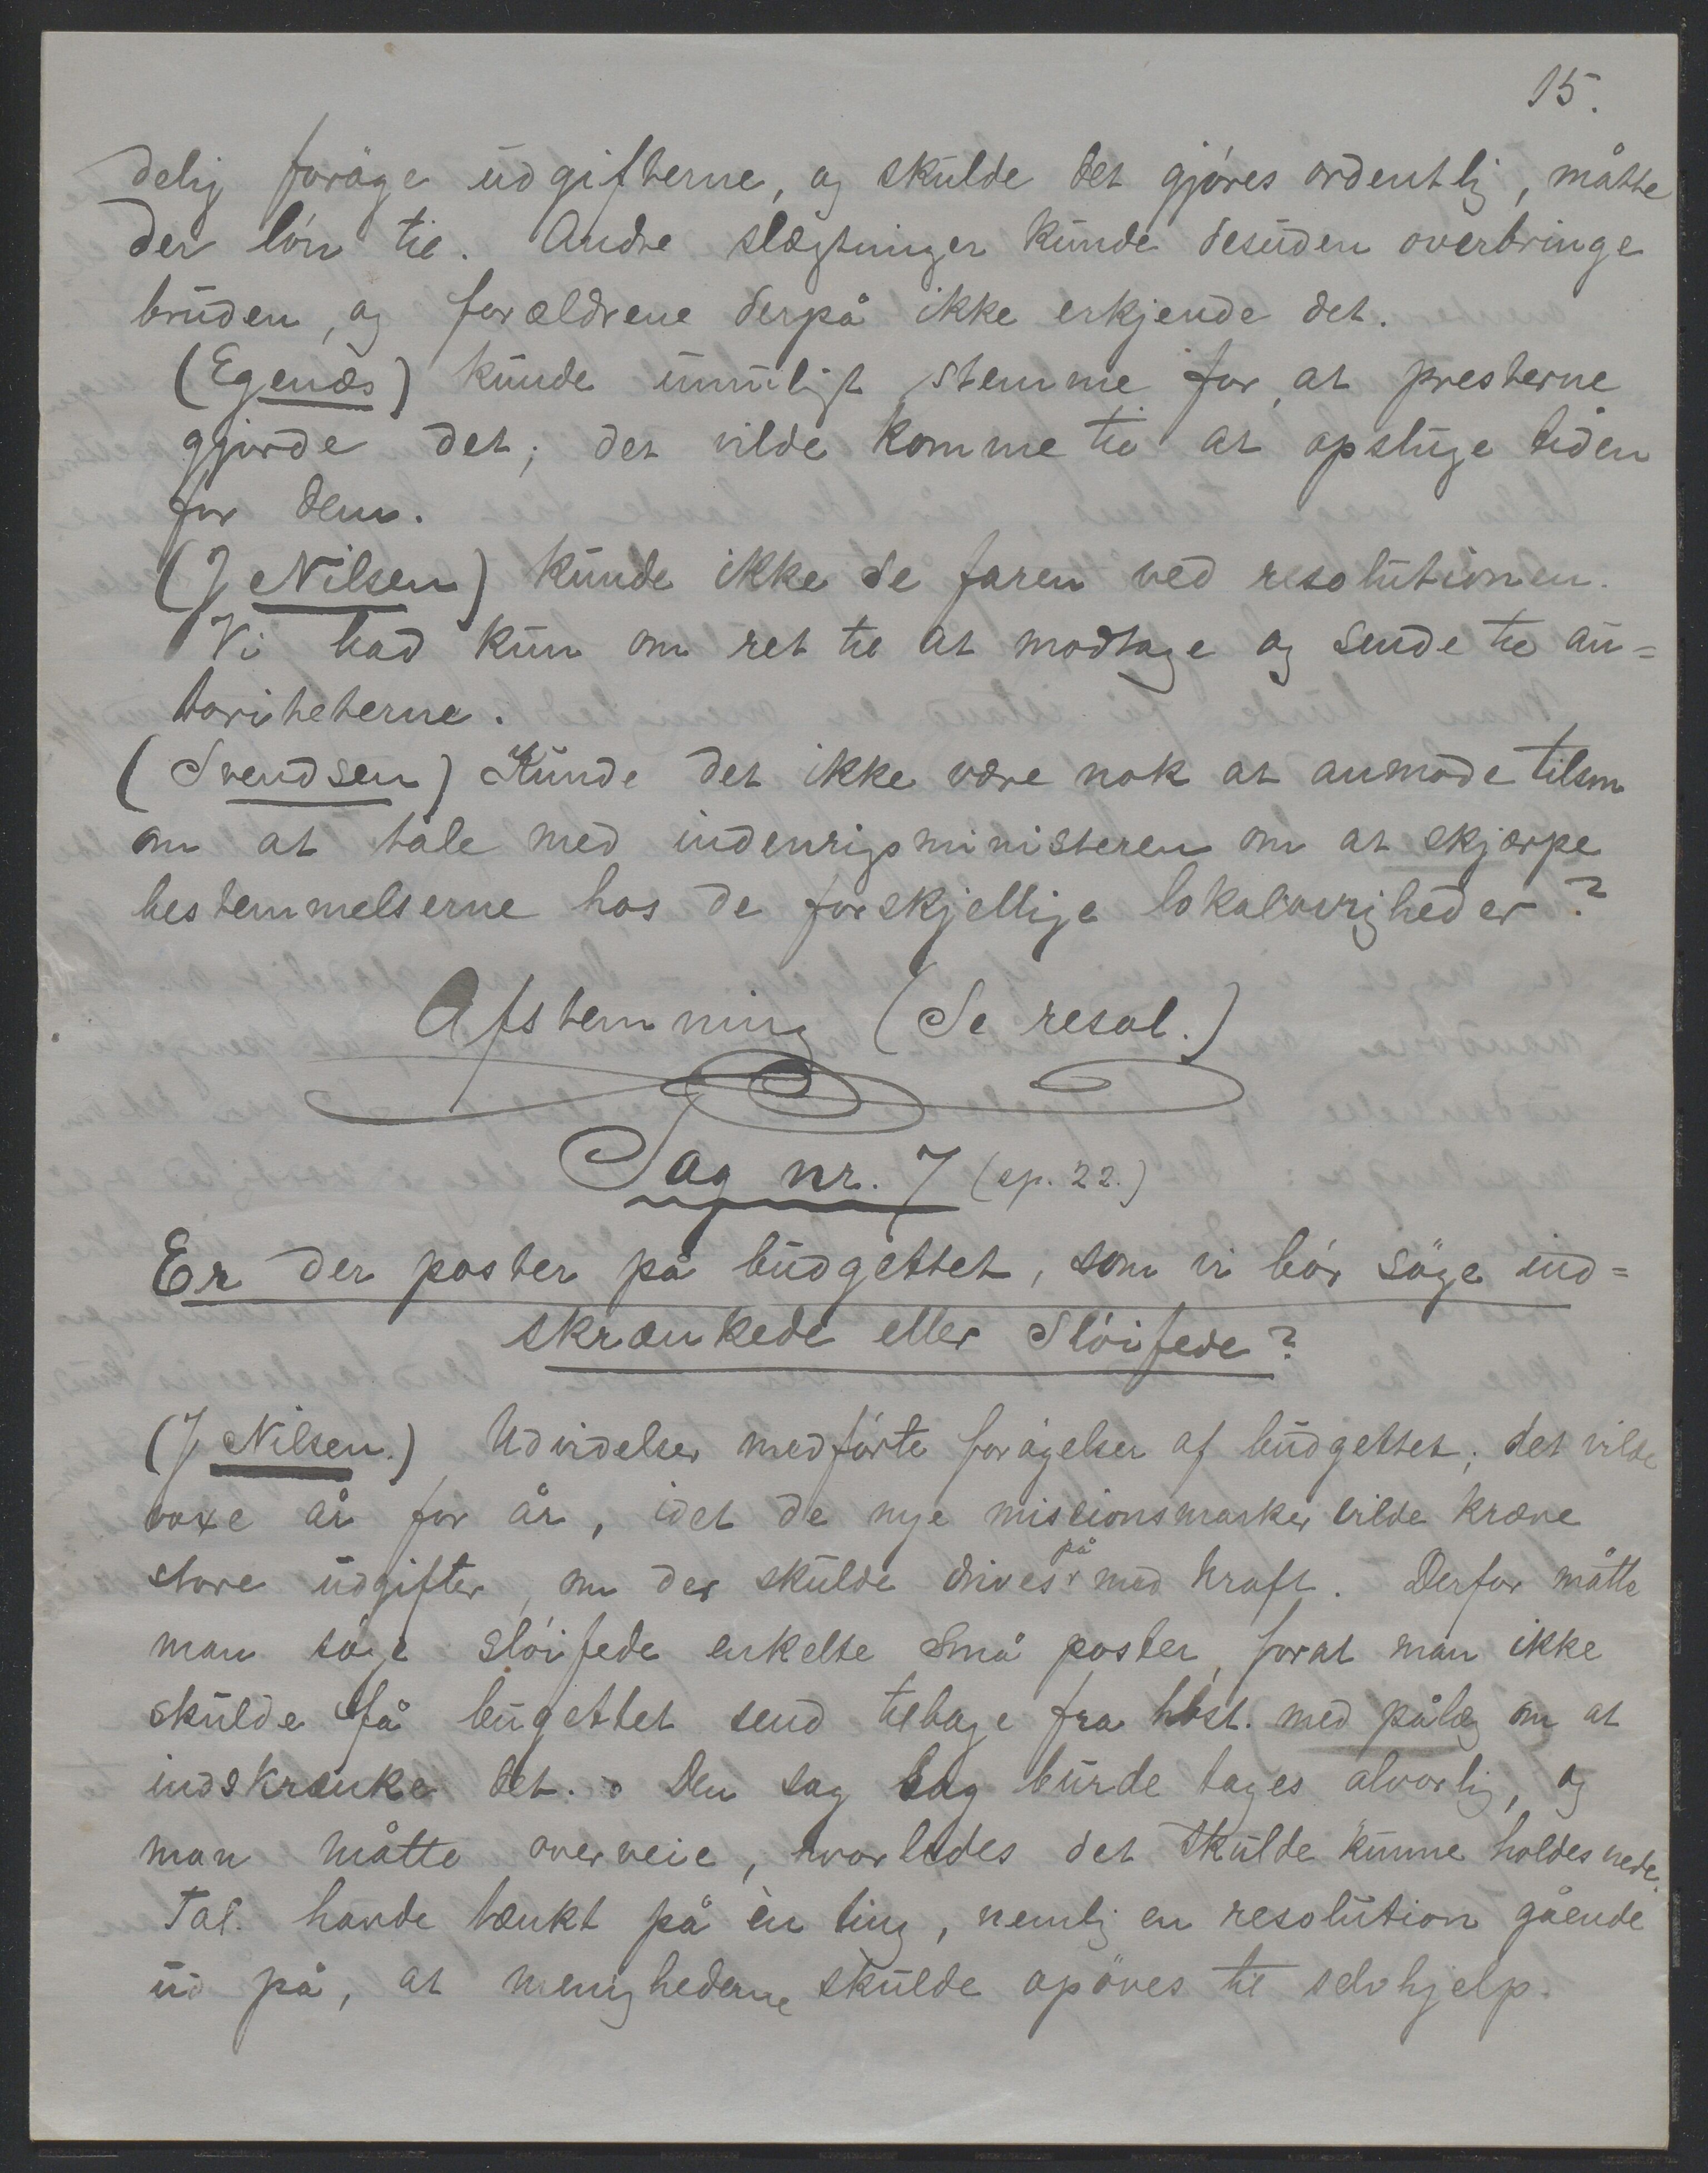 15.
delig forøge udgifterne, og skulde det gjøres ordentlig, måtte
der løn til. Andre slægtninger kunde desuden overbringe
bruden, og forældrene derpå ikke erkjende det.
(Egenæs) kunde umuligt stemme for, at presterne
gjorde det; det vilde komme til at opsluge tiden
for dem.
(J Nilsen) kunde ikke se faren ved resolutionen.
Vi bad kun om ret til at modtage og sende til au=
toriteterne.
(Svendsen) Kunde det ikke være nok at anmode tilsm
om at tale med indenrigsministeren om at skjærpe
bestemmelserne hos de forskjellige lokaløvrigheder?
Afstemning (Se resol.)
Sag nr. 7 (sp. 22.)
Er der poster på budgettet, som vi bør søge ind=
skrænkede eller Sløifede?
(J Nilsen.) Udvidelser medførte forøgelser af budgettet; det vilde
voxe år for år, idet de nye missionsmarker vilde kræve
store udgifter, om der skulde drives på med kraft. Derfor måtte
man søge sløifede enkelte små poster, forat man ikke
skulde få bugettet send tilbage fra hbst. med pålæg om at
indskrænke det. Den sag sag burde tages alvorlig, og
man måtte overveie, hvorledes det skulde kunne holdes nede.
Tal. havde tænkt på èn ting, nemlig en resolution gående
ud på, at menighederne skulde opöves til selvhjelp.